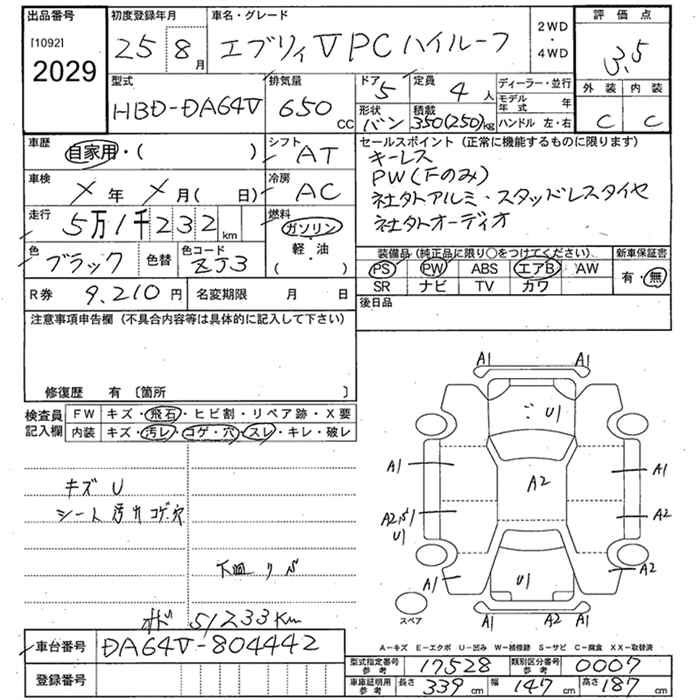 出品番号
[1092]
2029
初度登録年月
25 8月
車名・グレード
エブリィ V PC ハイルーフ
2WD・4WD
評価点
3.5
外装 内装
C C
型式
HBD-DA64V
排気量
650 CC
ドア
5
定員
4人
形状
バン
積載
350(250)kg
ディーラー・並行
モデル年式 年
ハンドル 左・右
車歴
自家用・( )
シフト
AT
車検
X年 X月( 日)
冷房
AC
走行
5万1千232km
燃料
ガソリン・軽・油
( )
色
ブラック
色替
色コード
ZJ3
R券 9,210円
名変期限 月 日
セールスポイント(正常に機能するものに限ります)
キーレス
PW(Fのみ)
社外アルミ・スタッドレスタイヤ
社外オーディオ
装備品(純正品に限り○をつけてください)
PS PW ABS エアB AW
SR ナビ TV カワ
新車保証書
有・無
後日品
注意事項申告欄(不具合内容等は具体的に記入して下さい)
修復歴 有〔箇所 〕
検査員記入欄
FW キズ・飛石・ヒビ割・リペア跡・X要
内装 キズ・汚レ・コゲ・穴・スレ・キレ・破レ
キズ U
シート 汚れ コゲ穴
下回り サ
オド 51233Km
A1 A1
U1
A1 A1
A2
A2 U1 A2
A1 U1 A2
A1 A1
スペア
車台番号 DA64V-804442
登録番号
A-キズ E-エクボ U-凹み W-補修跡 S-サビ C-腐食 XX-取替済
型式指定番号 参考 17528 類別区分番号 参考 0007
車庫証明用 参考 長さ 339cm 幅 147cm 高さ 187cm